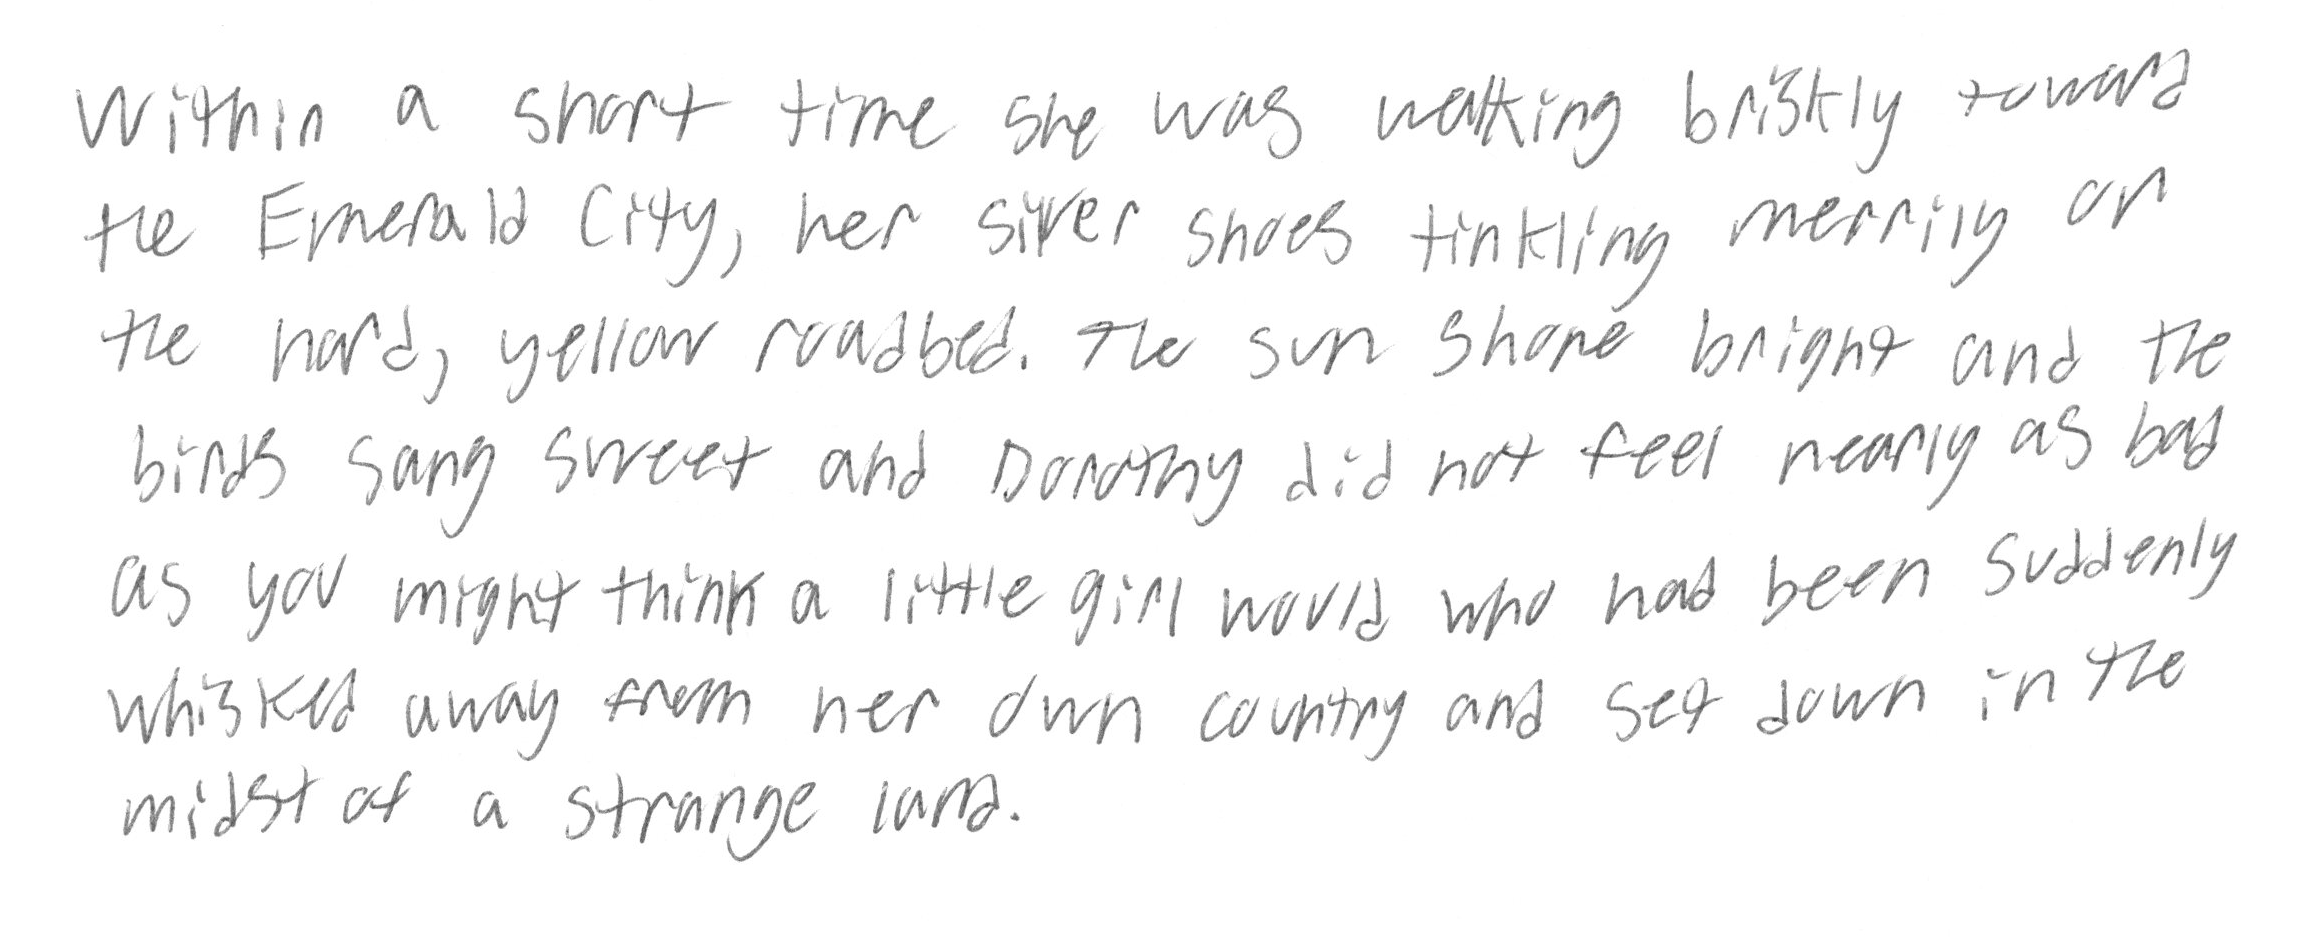 Within a short time she was walking briskly toward
the Emerald City, her silver shoes tinkling merrily on
the hard, yellow roadbed. The sun shone bright and the
birds sang sweet and Dorothy did not feel nearly as bad
as you might think a little girl would who had been suddenly
whisked away from her own country and set down in the
midst of a strange land.